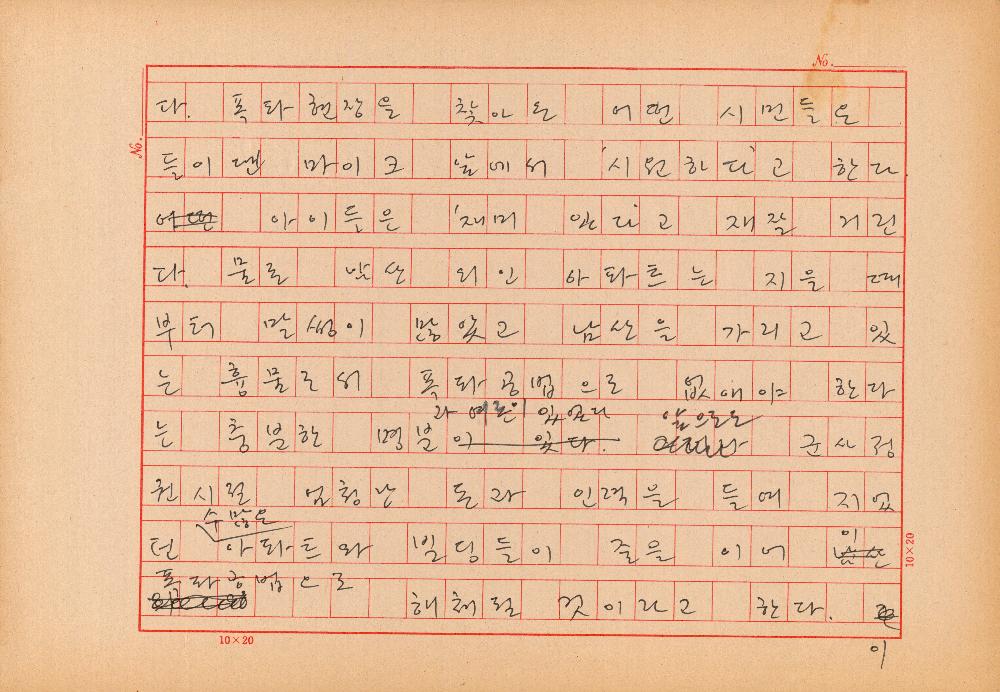 No.
No.
다. 폭파현장을 찾아 온 어떤 시민들은
들이댄 마이크 앞에서 '시원하다'고 한다.
아이들은 '재미 있다'고 재잘 거린
다. 물론 남산 외인 아파트는 지을 때
부터 말썽이 많았고 남산을 가리고 있
는 흉물로서 폭파공법으로 없애야 한다
과 여론이 있었다 앞으로도
는 충분한 명분 군사정
권시절 엄청난 돈과 인력을 들여 지었
수많은
던 아파트와 빌딩들이 줄을 이어 이
폭파공법으로
해체될 것이라고 한다.
이
10×20
10×20